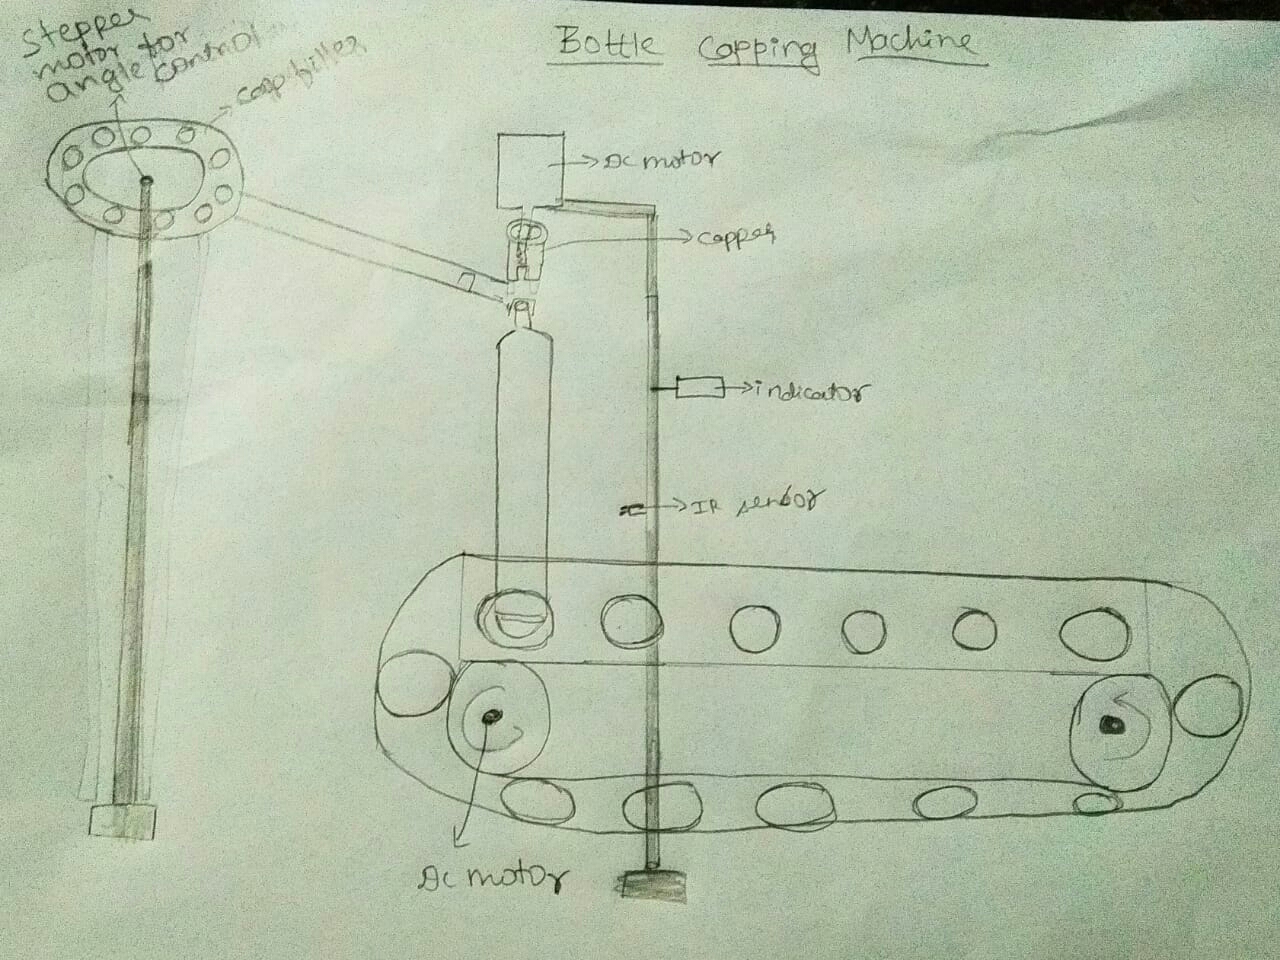 Bottle Capping Machine
Stepper
motor for
angle control
cap filler
DC motor
capper
indicator
IR sensor
DC motor